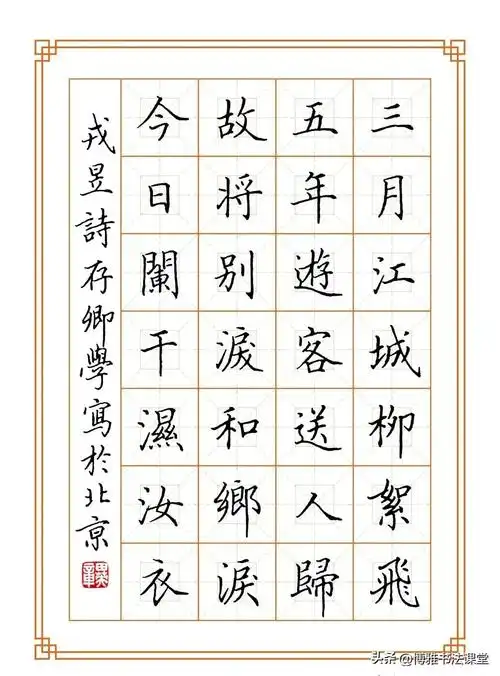 三月江城柳絮飛
五年遊客送人歸
故将别淚和鄉淚
今日闌干濕汝衣
戎昱詩存卿學寫於北京
头条@博雅书法课堂